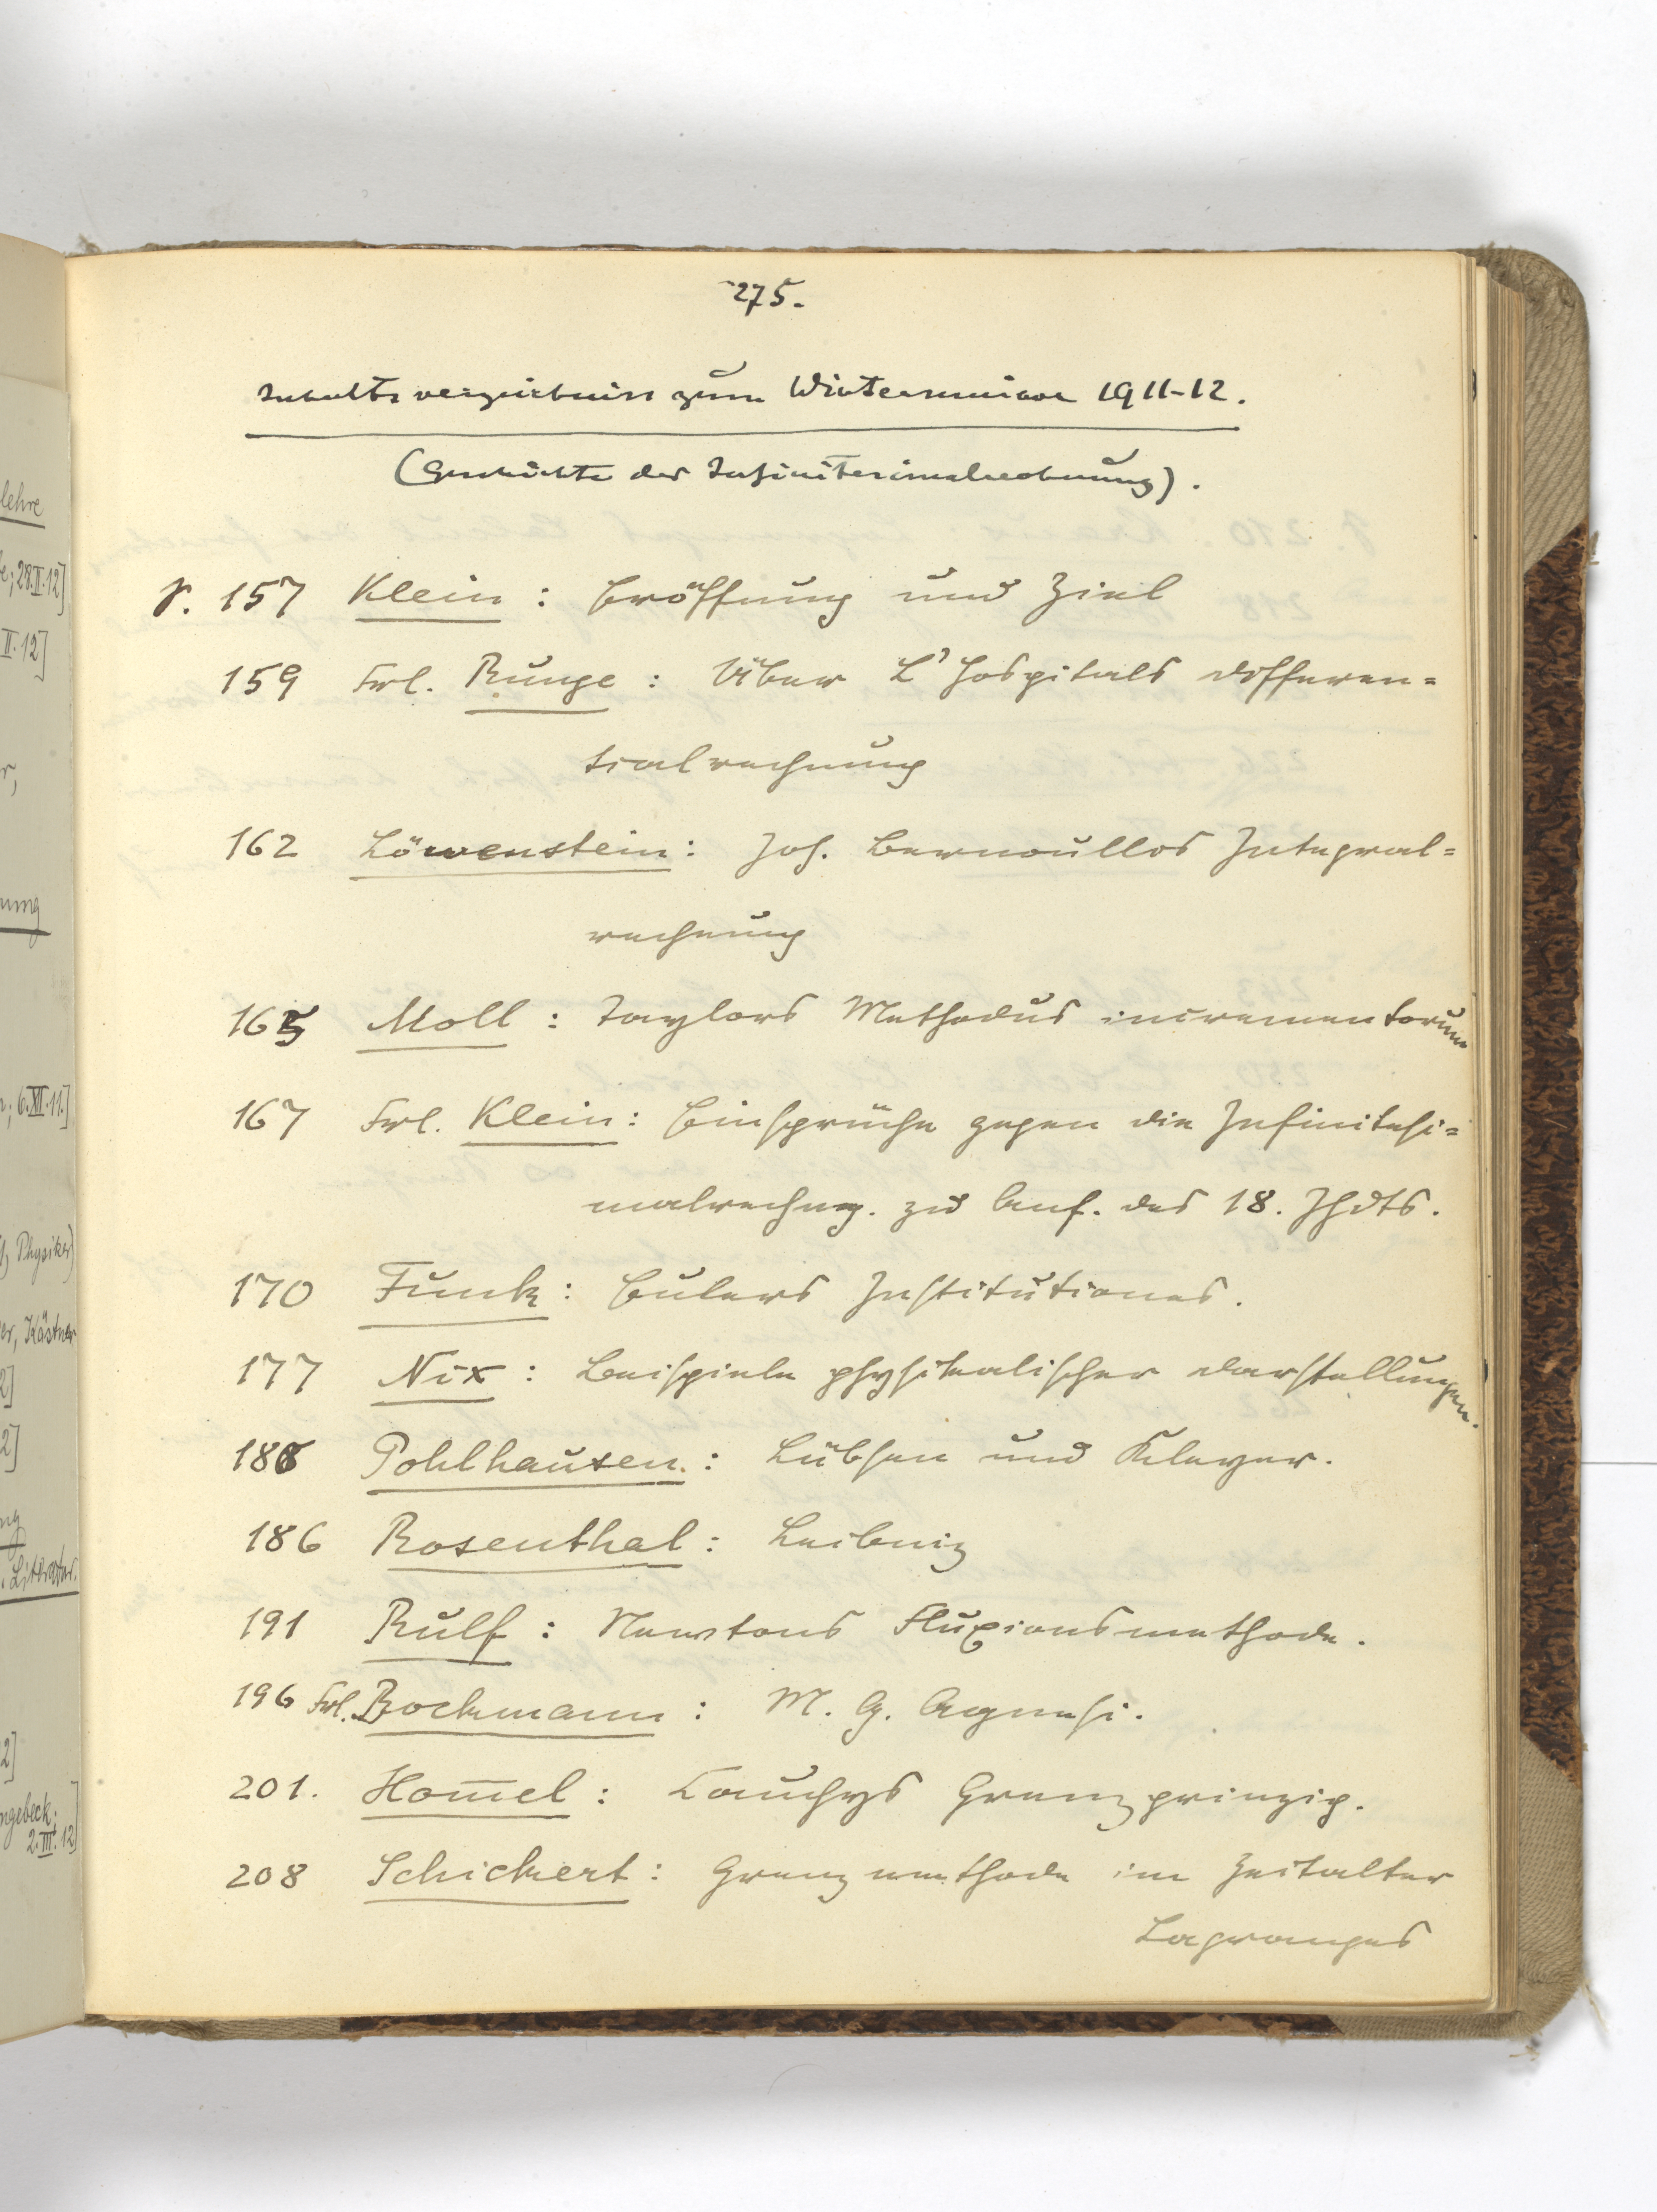 275.
Inhaltsverzeichniss zum Winterseminar 1911-12.
(Geschichte der Infinitesimalrechnung).
S. 157 Klein : Eröffnung und Ziel
159 Frl. Runge : Über L'Hospitals Differen=
tialrechnung
162 Löwenstein : Joh. Bernoullis Integral=
rechnung
165 Moll : Taylors Methodus incrementorum
167 Frl. Klein : Einsprüche gegen die Infinitesi=
malrechng. zu Anf. des 18. Jhdts.
170 Funk : Eulers Institutiones.
177 Nix : Beispiele physikalischer Darstellungen.
Pohlhausen : Lübsen und Kleyer.
186 Rosenthal : Leibniz
191 Rulf : Newtons Fluxionsmethode.
196 Frl. Bockmann : M. G. Agnesi.
201. Hom̄el : Cauchys Grenzprinzip.
208 Schickert : Grenzmethode im Zeitalter
Lagranges
lehre
28.II.12]
II.12]
nung
6.XI.11.]
Physiker)
Kästner
Literatur.
2.III.12]